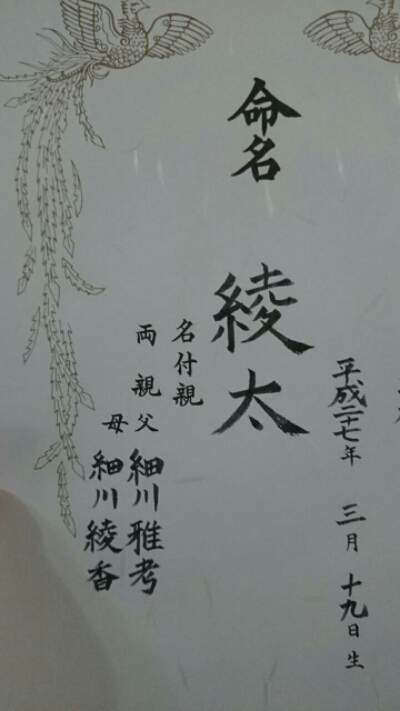 平成二十七年 三月 十九日生
命名 綾太
名付親
両親 父 細川雅考
母 細川綾香